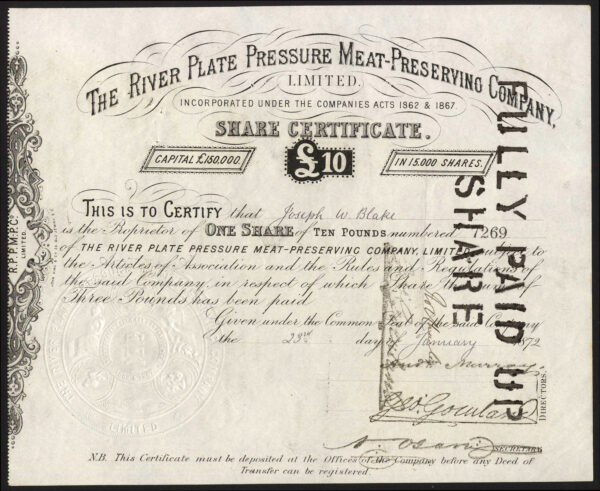 THE RIVER PLATE PRESSURE MEAT-PRESERVING COMPANY,
LIMITED.
INCORPORATED UNDER THE COMPANIES ACTS 1862 & 1867.
SHARE CERTIFICATE.
CAPITAL £150,000. £10 IN 15,000 SHARES.
THIS IS TO CERTIFY that Joseph W. Blake
is the Proprietor of ONE SHARE of TEN POUNDS numbered 7269
of THE RIVER PLATE PRESSURE MEAT-PRESERVING COMPANY, LIMITED, subject to
the Articles of Association and the Rules and Regulations of
the said Company, in respect of which Share the sum of
Three Pounds has been paid.
Given under the Common Seal of the said Company
the 23rd day of January 1872
Murray
DIRECTORS.
SECRETARY
N.B. This Certificate must be deposited at the Offices of the Company before any Deed of
Transfer can be registered.
FULLY PAID UP
SHARE
R.P.P.M.P.C.
LIMITED.
LIMITED